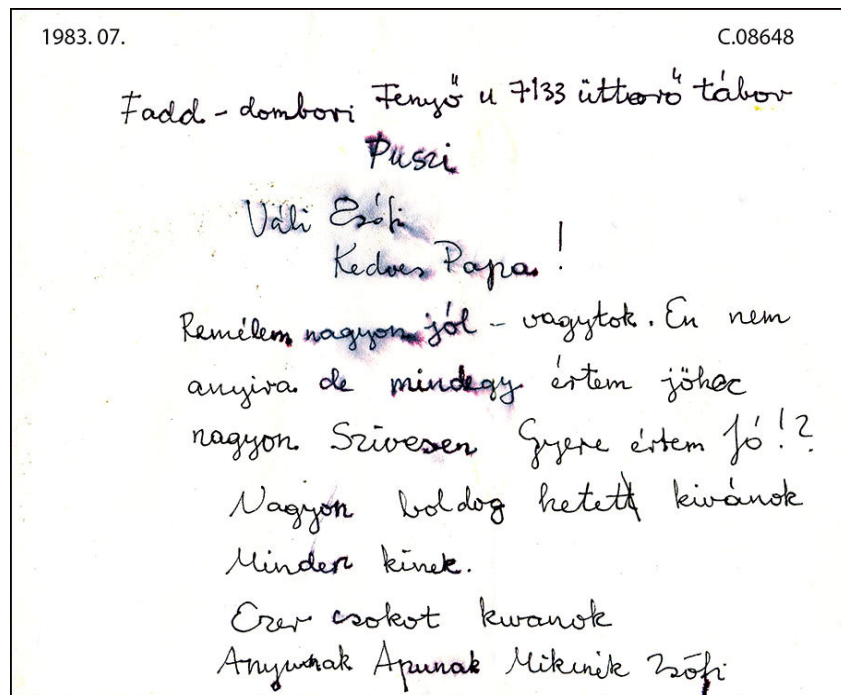 1983. 07. C.08648
Fadd - dombori Fenyő u 7133 üttörő tábor
Puszi
Váli Zsófi
Kedves Papa!
Remélem nagyon jól - vagytok. Én nem
anyira de mindegy értem jöhec
nagyon Szívesen Gyere értem Jó!?
Nagyon boldog hetett kivánok
Minden kinek.
Ezer csokot kivanok
Anyunak Apunak Mikinek Zsófi